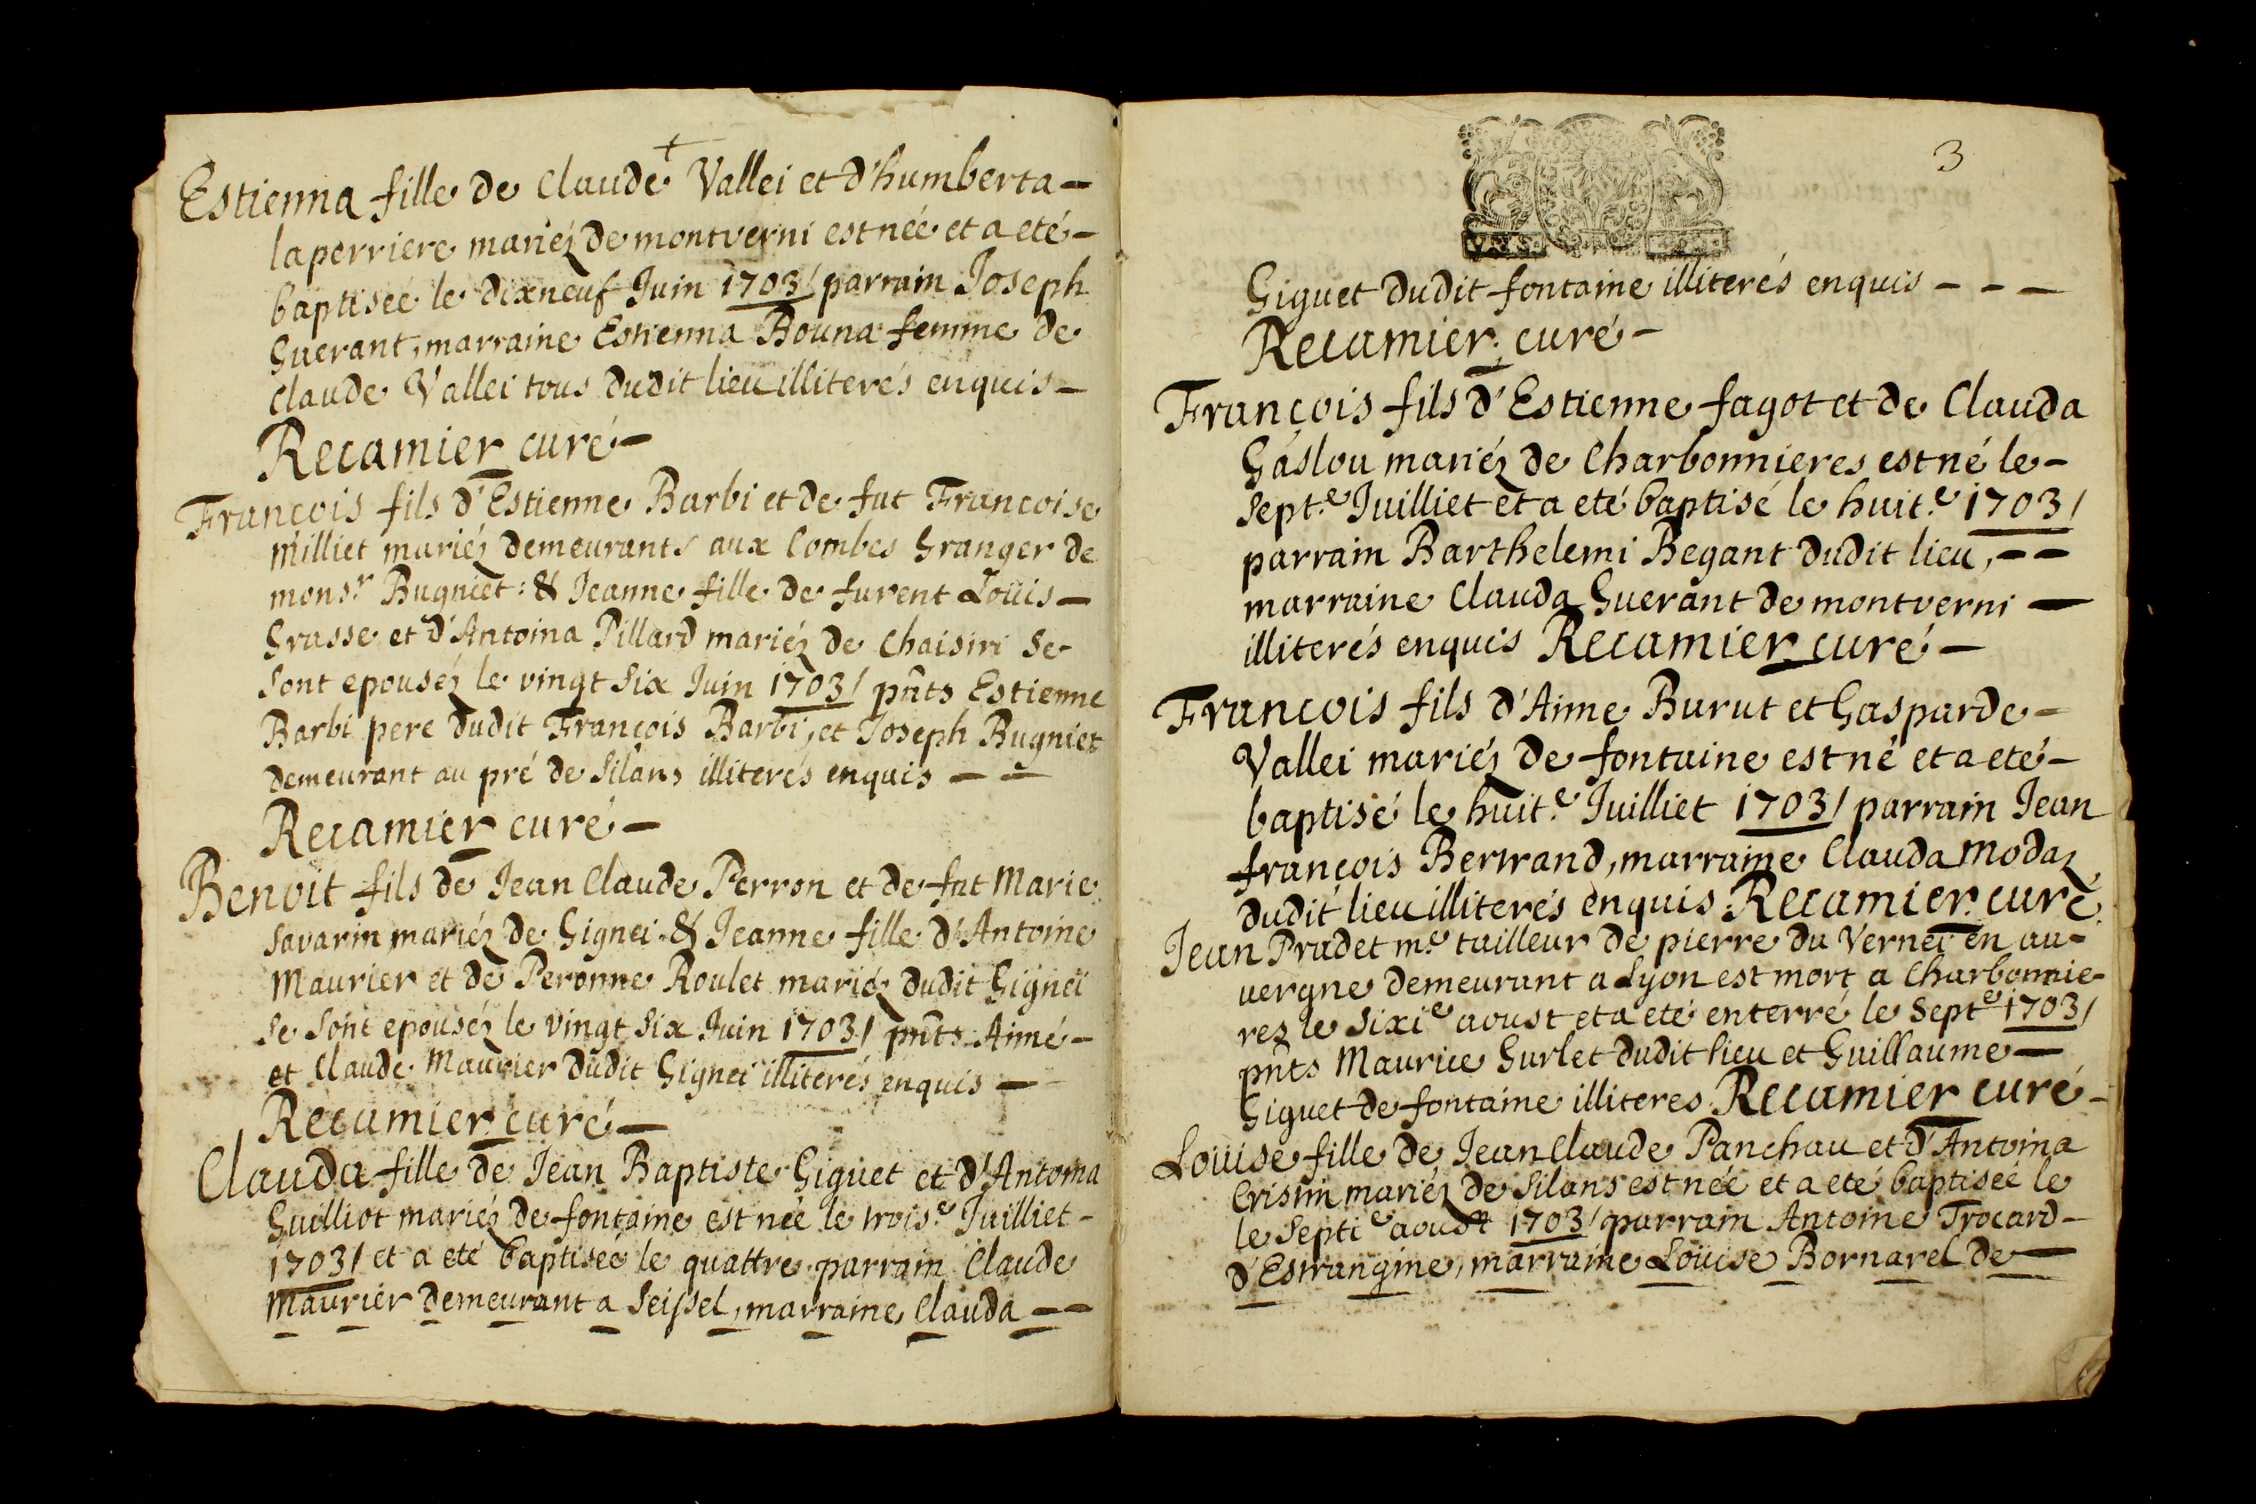 Estienna fille de Claude Vallei et d'humberta -
laperriere mariéz de montverni est née et a eté -
baptiseé le dixneuf Juin 1703 / parrain Joseph
Guerant, marraine Estienna Bouna femme de
Claude Vallei tous dudit lieu illiterés enquis -
Recamier curé -
François fils d'Estienne Barbi et de fut Francoise
Milliet mariéz demeurants aux Combes Granger de
mons.r Bugniet : & Jeanne fille de furent Loüis -
Grasse et d'Antoina Pillard mariéz de Chaisiri se
sont epouséz le vingt six Juin 1703 / pñts Estienne
Barbi pere dudit François Barbi, et Joseph Bugniet
demeurant au pré de Silans illiterés enquis - -
Recamier curé -
Benoit fils de Jean Claude Perron et de fut Marie
Savarin mariéz de Gignei & Jeanne fille d'Antoine
Maurier et de Peronne Roulet mariéz dudit Gignei
se sont epouséz le vingt six Juin 1703 / pñts Aimé -
et Claude Maurier dudit Gignei illiterés enquis -
Recamier curé -
Clauda fille de Jean Baptiste Giguet et d'Antoina
Guilliot mariéz de fontaine est née le trois.e Juilliet -
1703 / et a eté baptiseé le quattre parrain Claude
Maurier demeurant a Seissel, marraine Clauda - -
3
Giguet dudit fontaine illiterés enquis - - -
Recamier curé -
François fils d'Estienne fagot et de Clauda
Gaslou mariéz de Charbonnieres est né le -
Sept.e Juilliet et a eté baptisé le huit.e 1703 /
parrain Barthelemi Begant dudit lieu, - -
marraine Clauda Guerant de montverni -
illiterés enquis Recamier curé -
François fils d'Aime Burut et Gasparde -
Vallei mariéz de fontaine est né et a eté -
baptisé le huit.e Juilliet 1703 / parrain Jean
françois Bertrand, marraine Clauda Modaz
dudit lieu illiterés enquis Recamier curé
Jean Pradet m.e tailleur de pierre du Vernet en au-
vergne demeurant a Lyon est mort a Charbonnie-
rez le sixi.e aoust et a eté enterré le Sept.e 1703 /
pñts Maurice Gurlet dudit lieu et Guillaume -
Giguet de fontaine illiteres Recamier curé -
Louise fille de Jean Claude Panchau et d'Antoina
Cristin mariéz de Silans est née et a eté baptiseé le
le Septi.e aoust 1703 / parrain Antoine Trocard -
d'Estrangine, marraine Loüise Bornarel de -